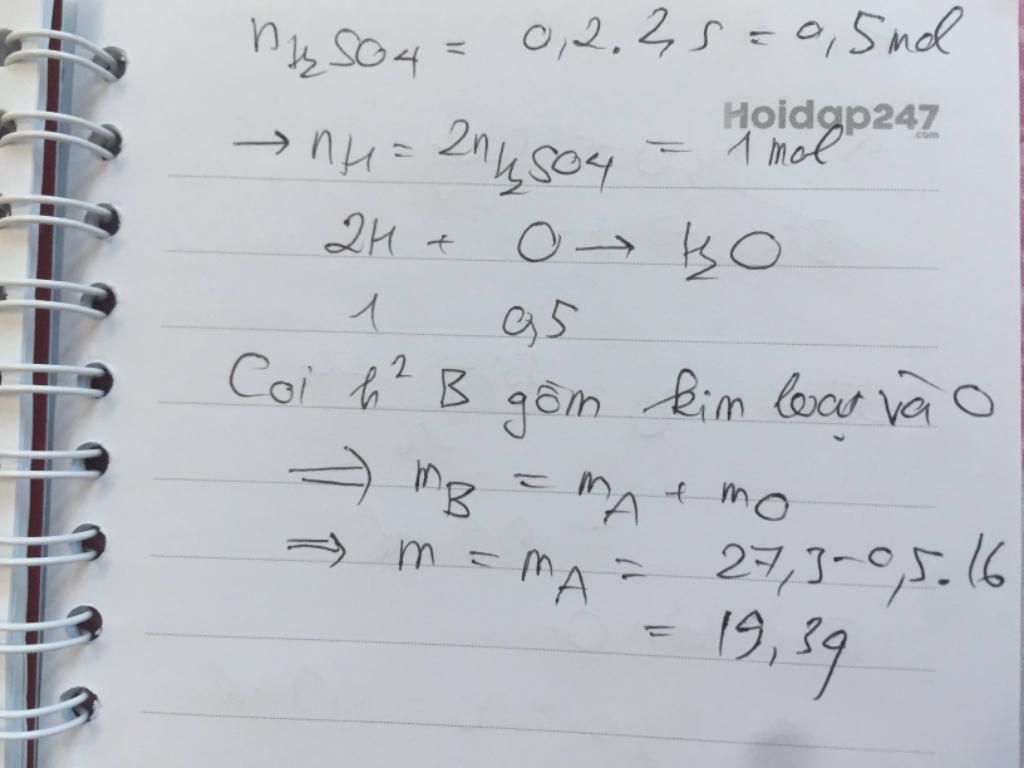 nH₂SO₄ = 0,2.2,5 = 0,5mol
Hoidap247
.com
→ nH = 2nH₂SO₄ = 1 mol
2H + O → H₂O
1 0,5
Coi h² B gồm kim loại và O
⇒ mB = mA + mO
⇒ m = mA = 27,3-0,5.16
= 19,3g